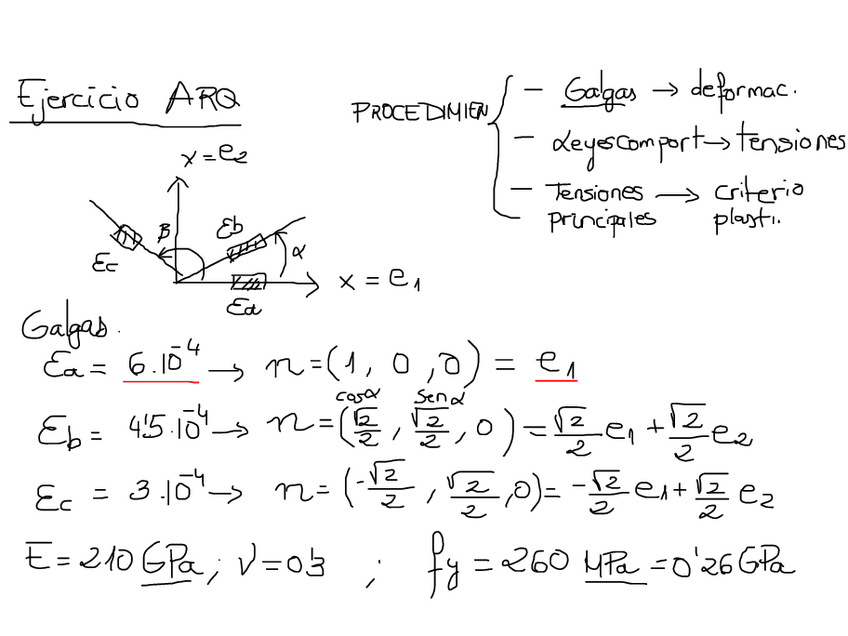 Ejercicio ARQ
PROCEDIMIEN
- Galgas → deformac.
- Leyescomport → tensiones
- Tensiones principales → criterio plasti.
x = e2
β
εb
α
εc
εa
x = e1
Galgas.
εa = 6.10^-4 → n = (1, 0, 0) = e1
cosα senα
εb = 4'5.10^-4 → n = (√2/2, √2/2, 0) = √2/2 e1 + √2/2 e2
εc = 3.10^-4 → n = (-√2/2, √2/2, 0) = -√2/2 e1 + √2/2 e2
E = 210 GPa; ν = 0'3 ; fy = 260 MPa = 0'26 GPa